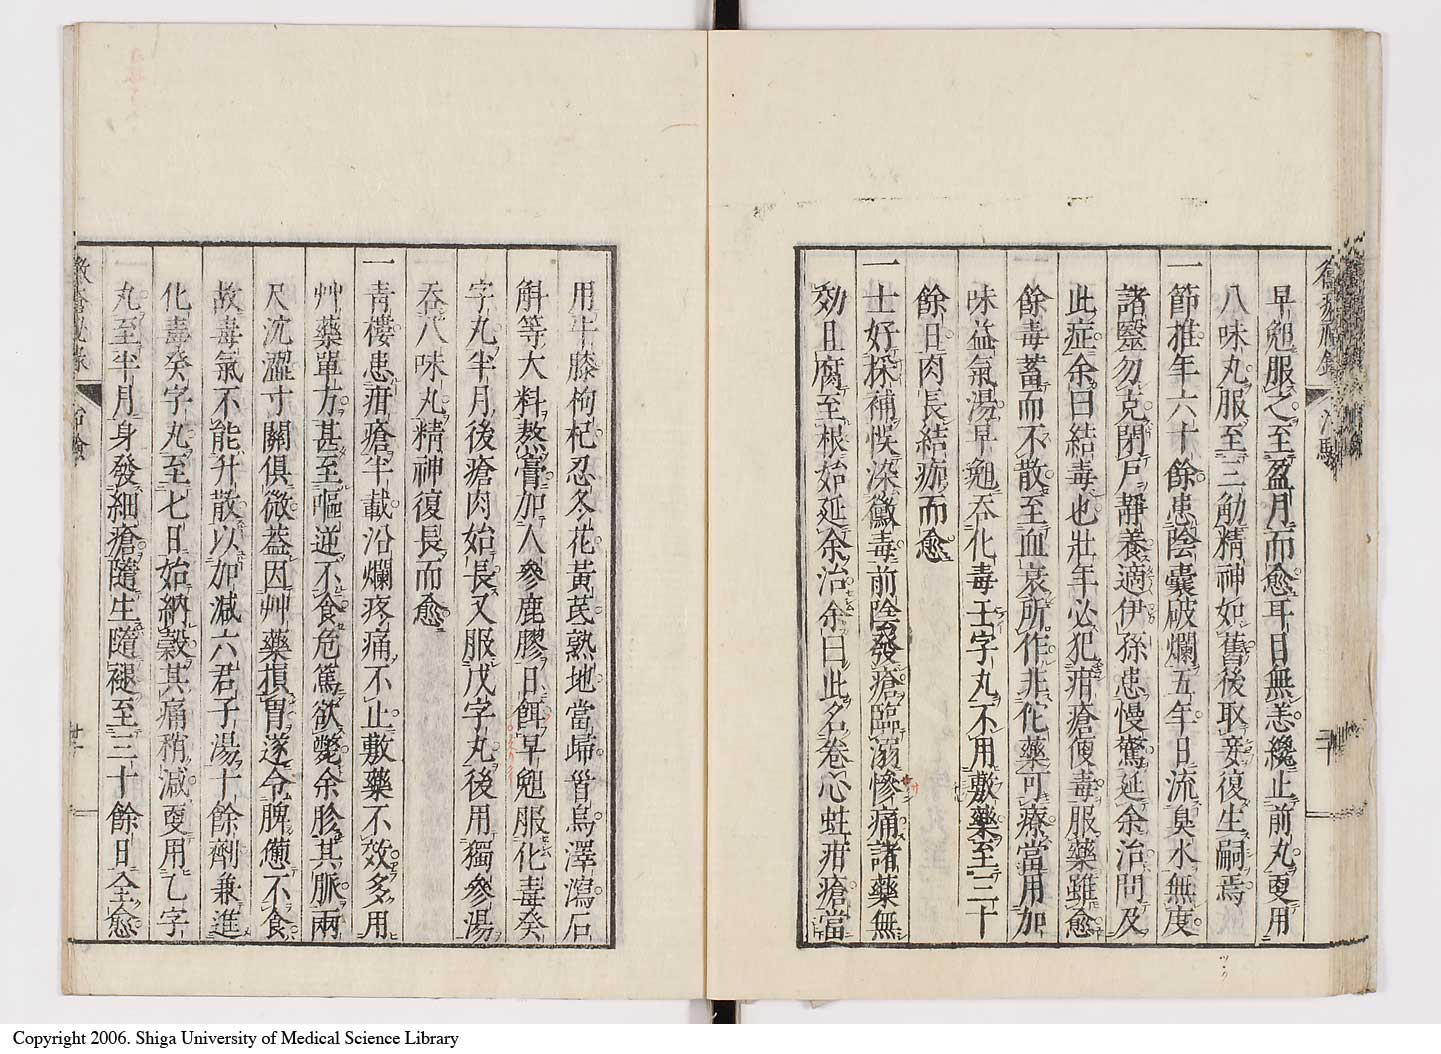 早勉服之至盈月而愈耳目無恙纔止前丸更用
八味丸服至三觔精神如舊後取妾復生嗣焉
一節推年六十餘患陰囊破爛五年日流臭水無度
諸醫勿克閉戶靜養適伊孫患慢驚延余治問及
此症余曰結毒也壯年必犯疳瘡便毒服藥雖愈
餘毒蓄而不散至血衰所作非佗藥可療當用加
味益氣湯早勉吞化毒壬字丸不用敷藥至三十
餘日肉長結痂而愈
一士好採補悞染黴毒前陰發瘡臨溺慘痛諸藥無
効且腐至根始延余治余曰此名卷心蛀疳瘡當
用牛膝枸杞忍冬花黃芪熟地當歸首烏澤瀉石
斛等大料熬膏加人參鹿膠日餌早勉服化毒癸
字丸半月後瘡肉始長又服戊字丸後用獨參湯
吞八味丸精神復長而愈
一青樓患疳瘡半載沿爛疼痛不止敷藥不效多用
艸藥單方甚至嘔逆不食危篤欲斃余胗其脈兩
尺沉澀寸關俱微葢因艸藥損胃遂令脾憊不食
故毒氣不能升散以加減六君子湯十餘劑兼進
化毒癸字丸至七日始納穀其痛稍減更用乙字
丸至半月身發細瘡隨生隨褪至三十餘日全愈
Copyright 2006. Shiga University of Medical Science Library